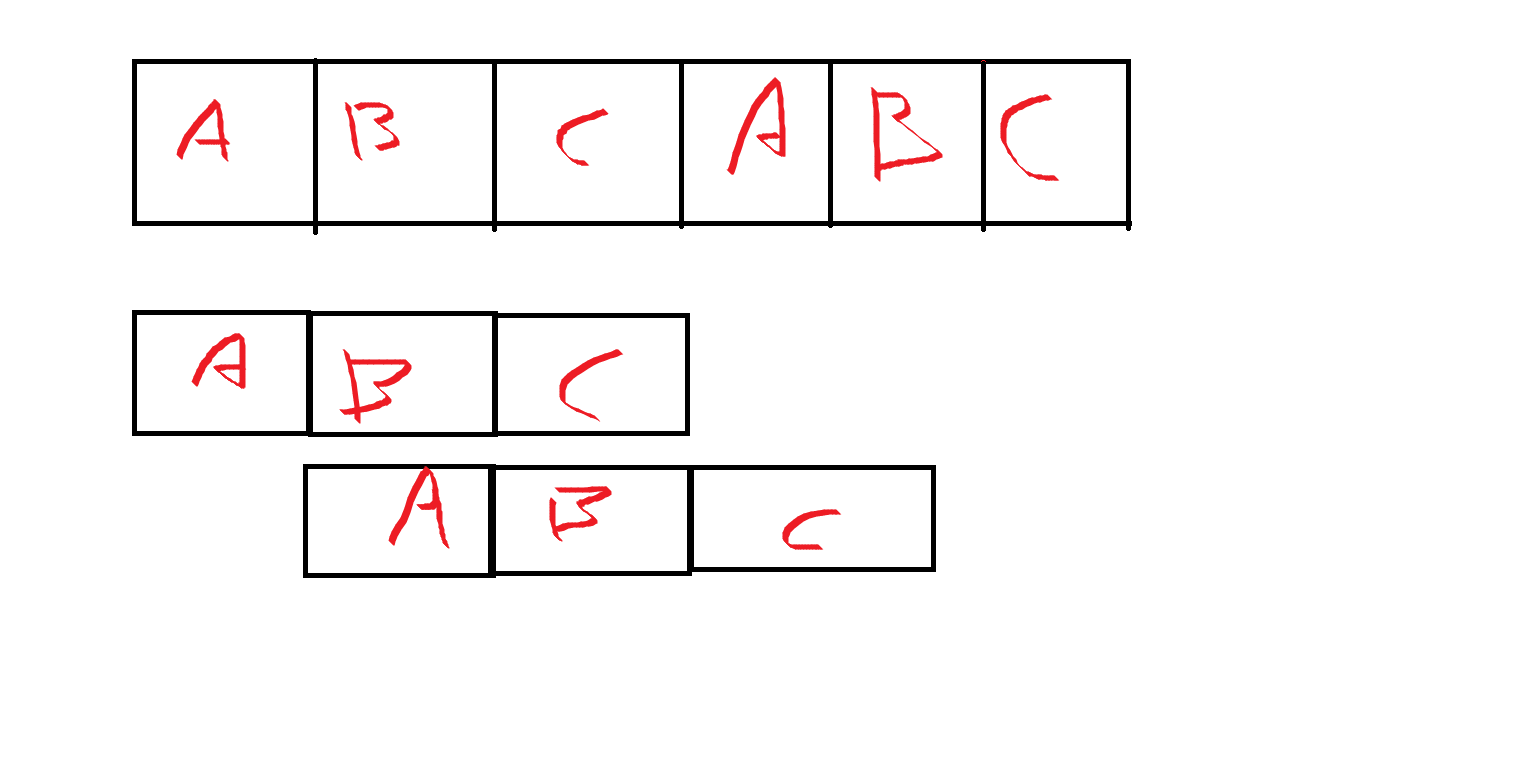 A B C A B C
A B C
A B C